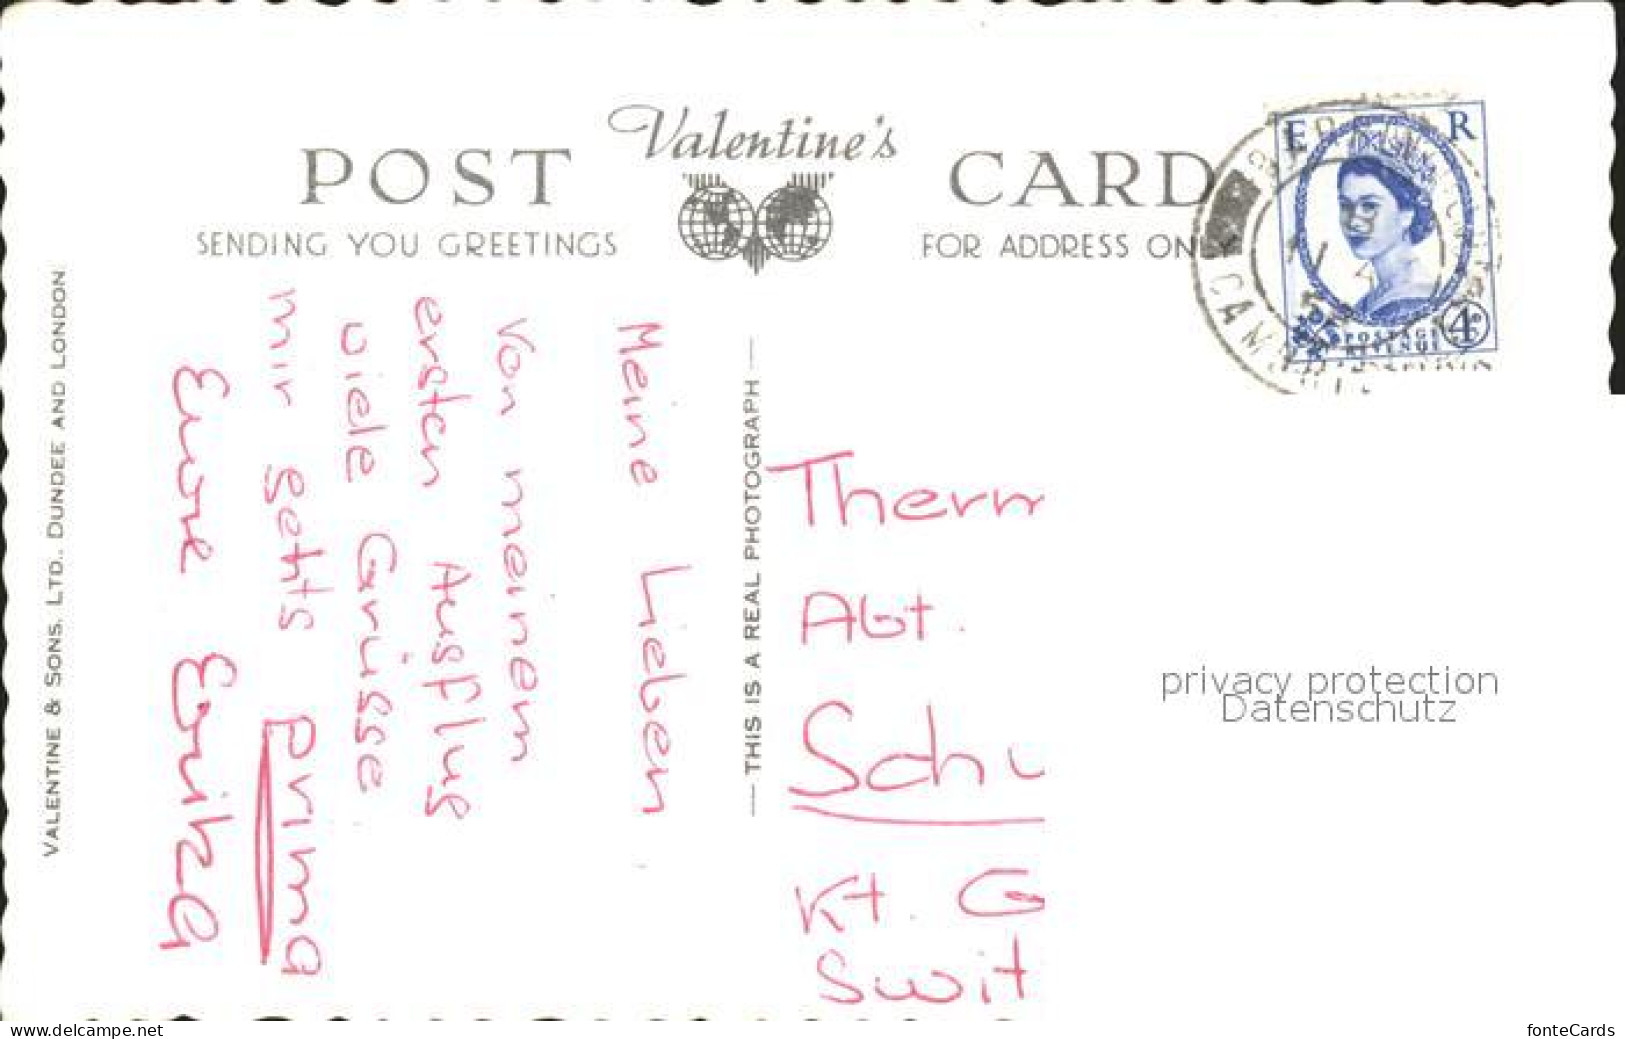 Valentine's
POST CARD
SENDING YOU GREETINGS
FOR ADDRESS ON
E R
POSTAGE
REVENUE
4D
CAM
Meine Lieben
Von meinem
ersten Ausflug
viele Grüsse
mir gehts prima
Eure Erika
VALENTINE & SONS, LTD., DUNDEE AND LONDON
THIS IS A REAL PHOTOGRAPH
Therm
Abt.
Schu
Kt. G
Swit
privacy protection
Datenschutz
www.delcampe.net
fonteCards